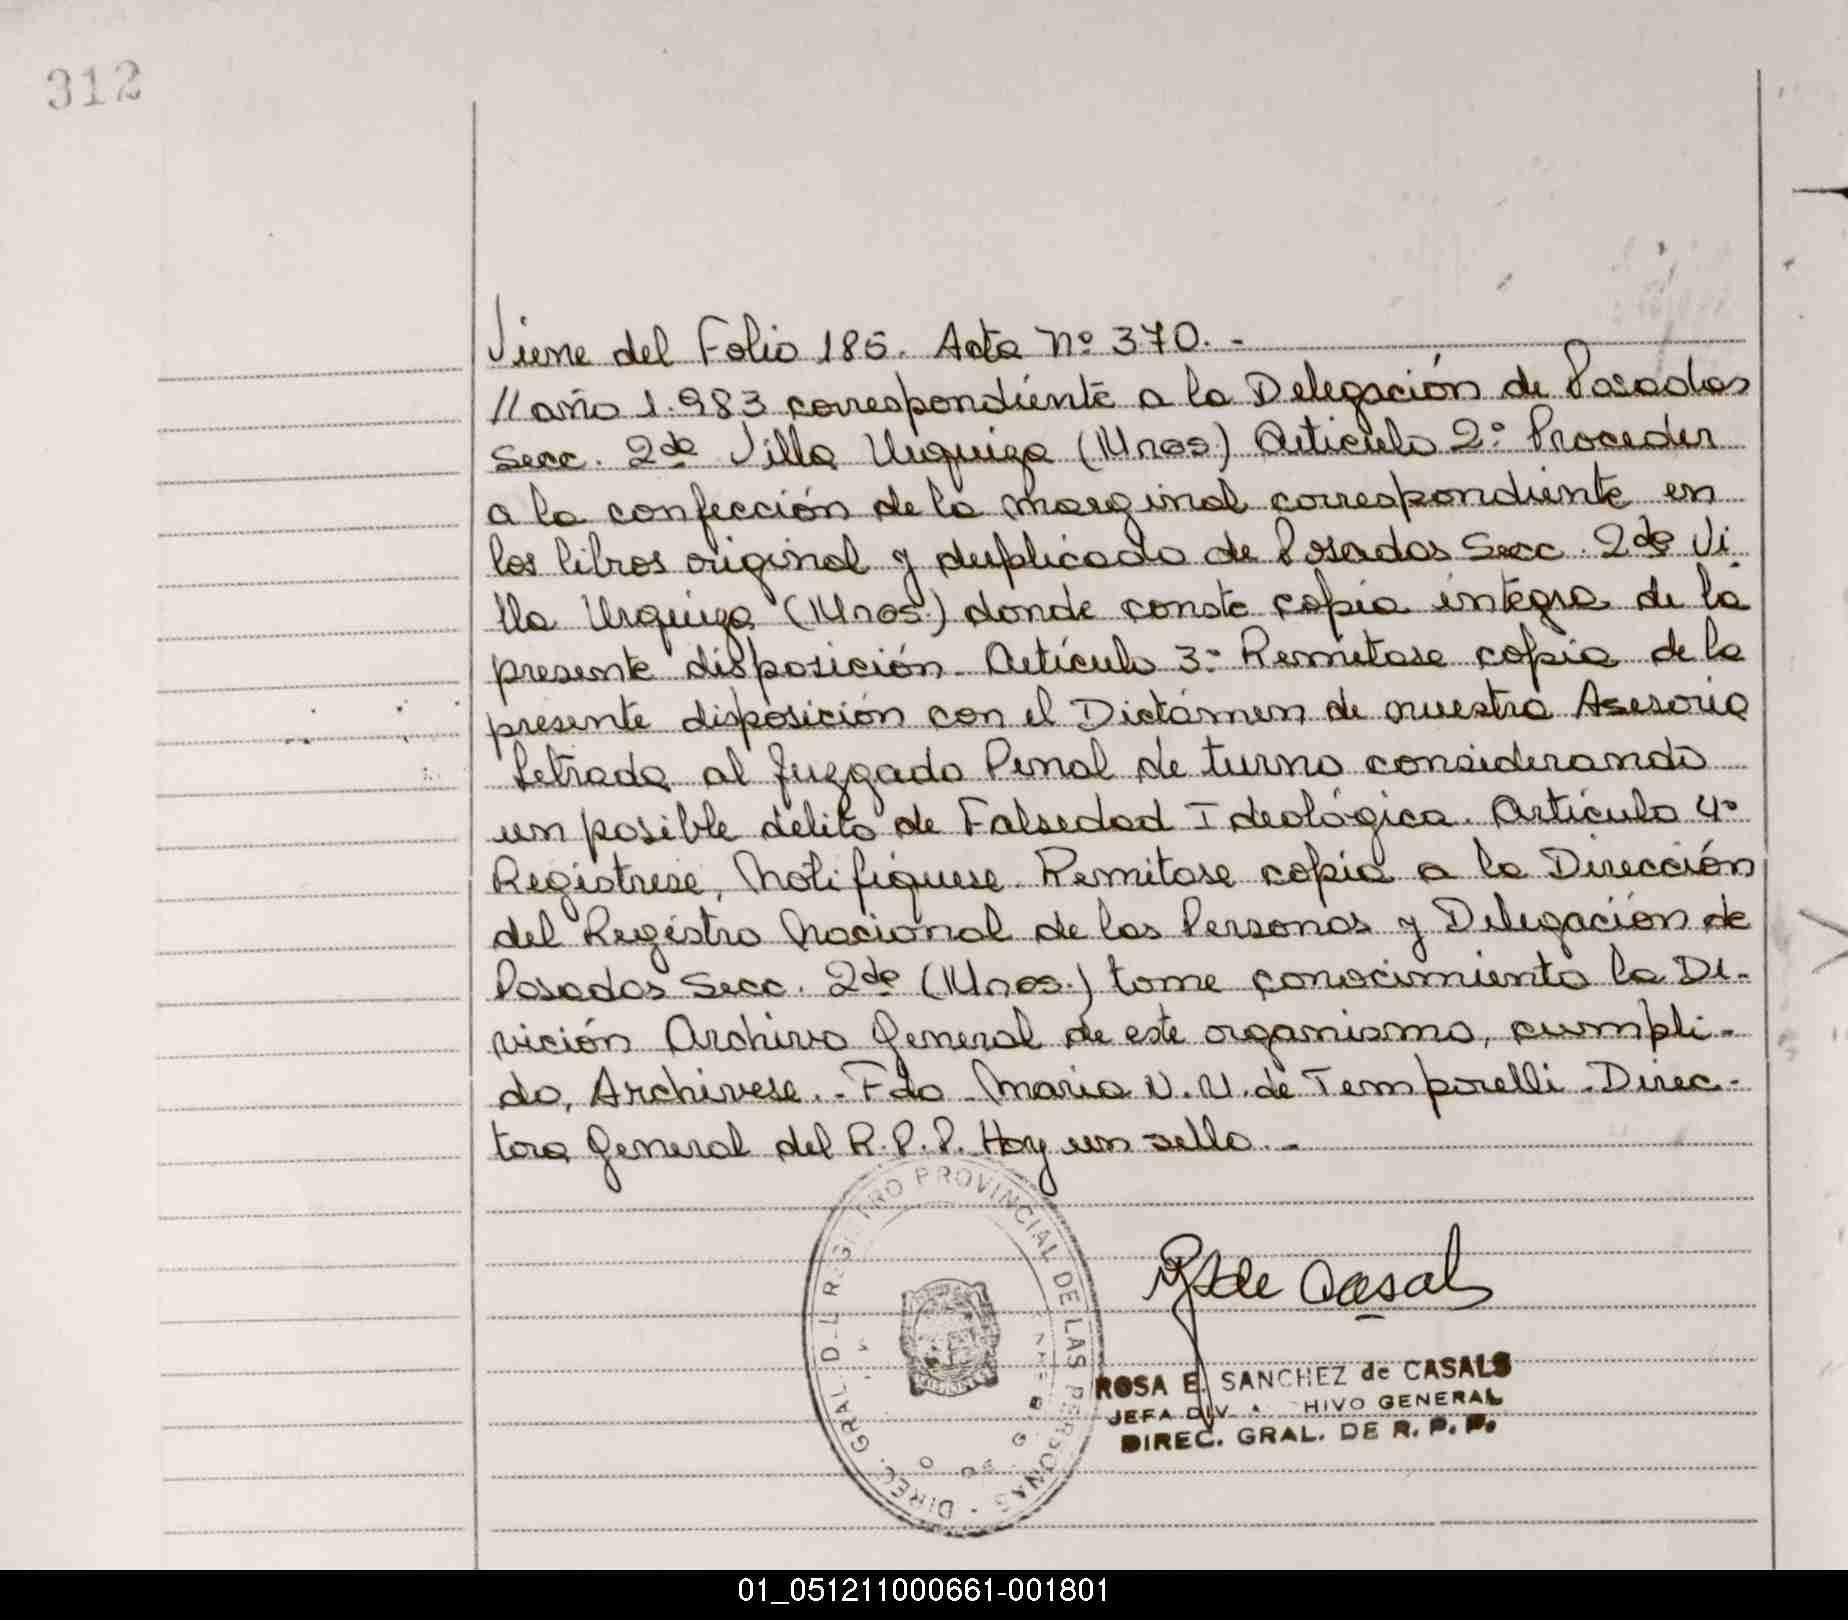 312
Viene del Folio 185. Acta Nº 370.-
//año 1.983 correspondiente a la Delegación de Posadas
Secc. 2da Villa Urquiza (Mnes.) Articulo 2º Proceder
a la confección de la marginal correspondiente en
los libros original y duplicado de Posadas Secc. 2da Vi
lla Urquiza (Mnes.) donde conste copia integra de la
presente disposición. Artículo 3º Remitase copia de la
presente disposición con el Dictámen de nuestra Asesoria
Letrada al Juzgado Penal de turno considerando
un posible delito de Falsedad Ideológica. Artículo 4º
Registrese, Notifiquese. Remitase copia a la Dirección
del Registro Nacional de las Personas y Delegación de
Posadas Secc. 2da (Mnes.) tome conocimiento la Di-
vición Archivo General de este organismo, cumpli-
do, Archivese.- Fdo Maria V. V. de Temporelli. Direc-
tora General del R.P.P. Hay un sello.-
DIREC. GRAL. D L REGI TRO PROVINCIAL DE LAS PERSONAS
de Casals
ROSA E. SANCHEZ de CASALS
JEFA DIV. A HIVO GENERAL
DIREC. GRAL. DE R. P. P.
01_051211000661-001801